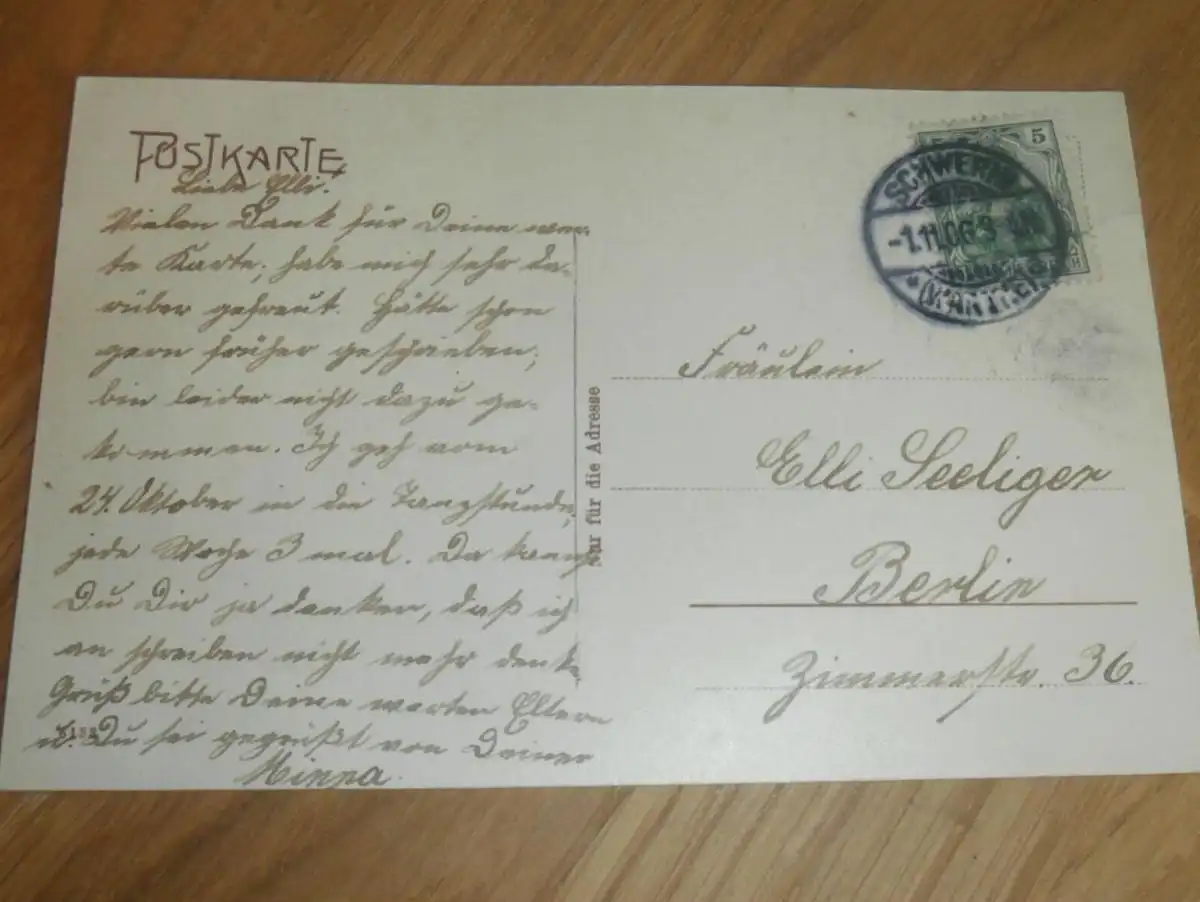 POSTKARTE
Liebe Elli!
Vielen Dank für Deine wer-
te Karte, habe mich sehr da-
rüber gefreut. Hätte schon
gern früher geschrieben,
bin leider nicht dazu ge-
kommen. Ich geh vom
24. Oktober in die Tanzstunde,
jede Woche 3 mal. Da kannst
Du Dir ja denken, daß ich
an schreiben nicht mehr denke.
Grüß bitte Deine werten Eltern
u. Du sei gegrüßt von Deiner
Minna.
Nur für die Adresse
5
SCHWERIN
-1.11.06.
(WARTHE)
Fräulein
Elli Seeliger
Berlin
Zimmerstr. 36.